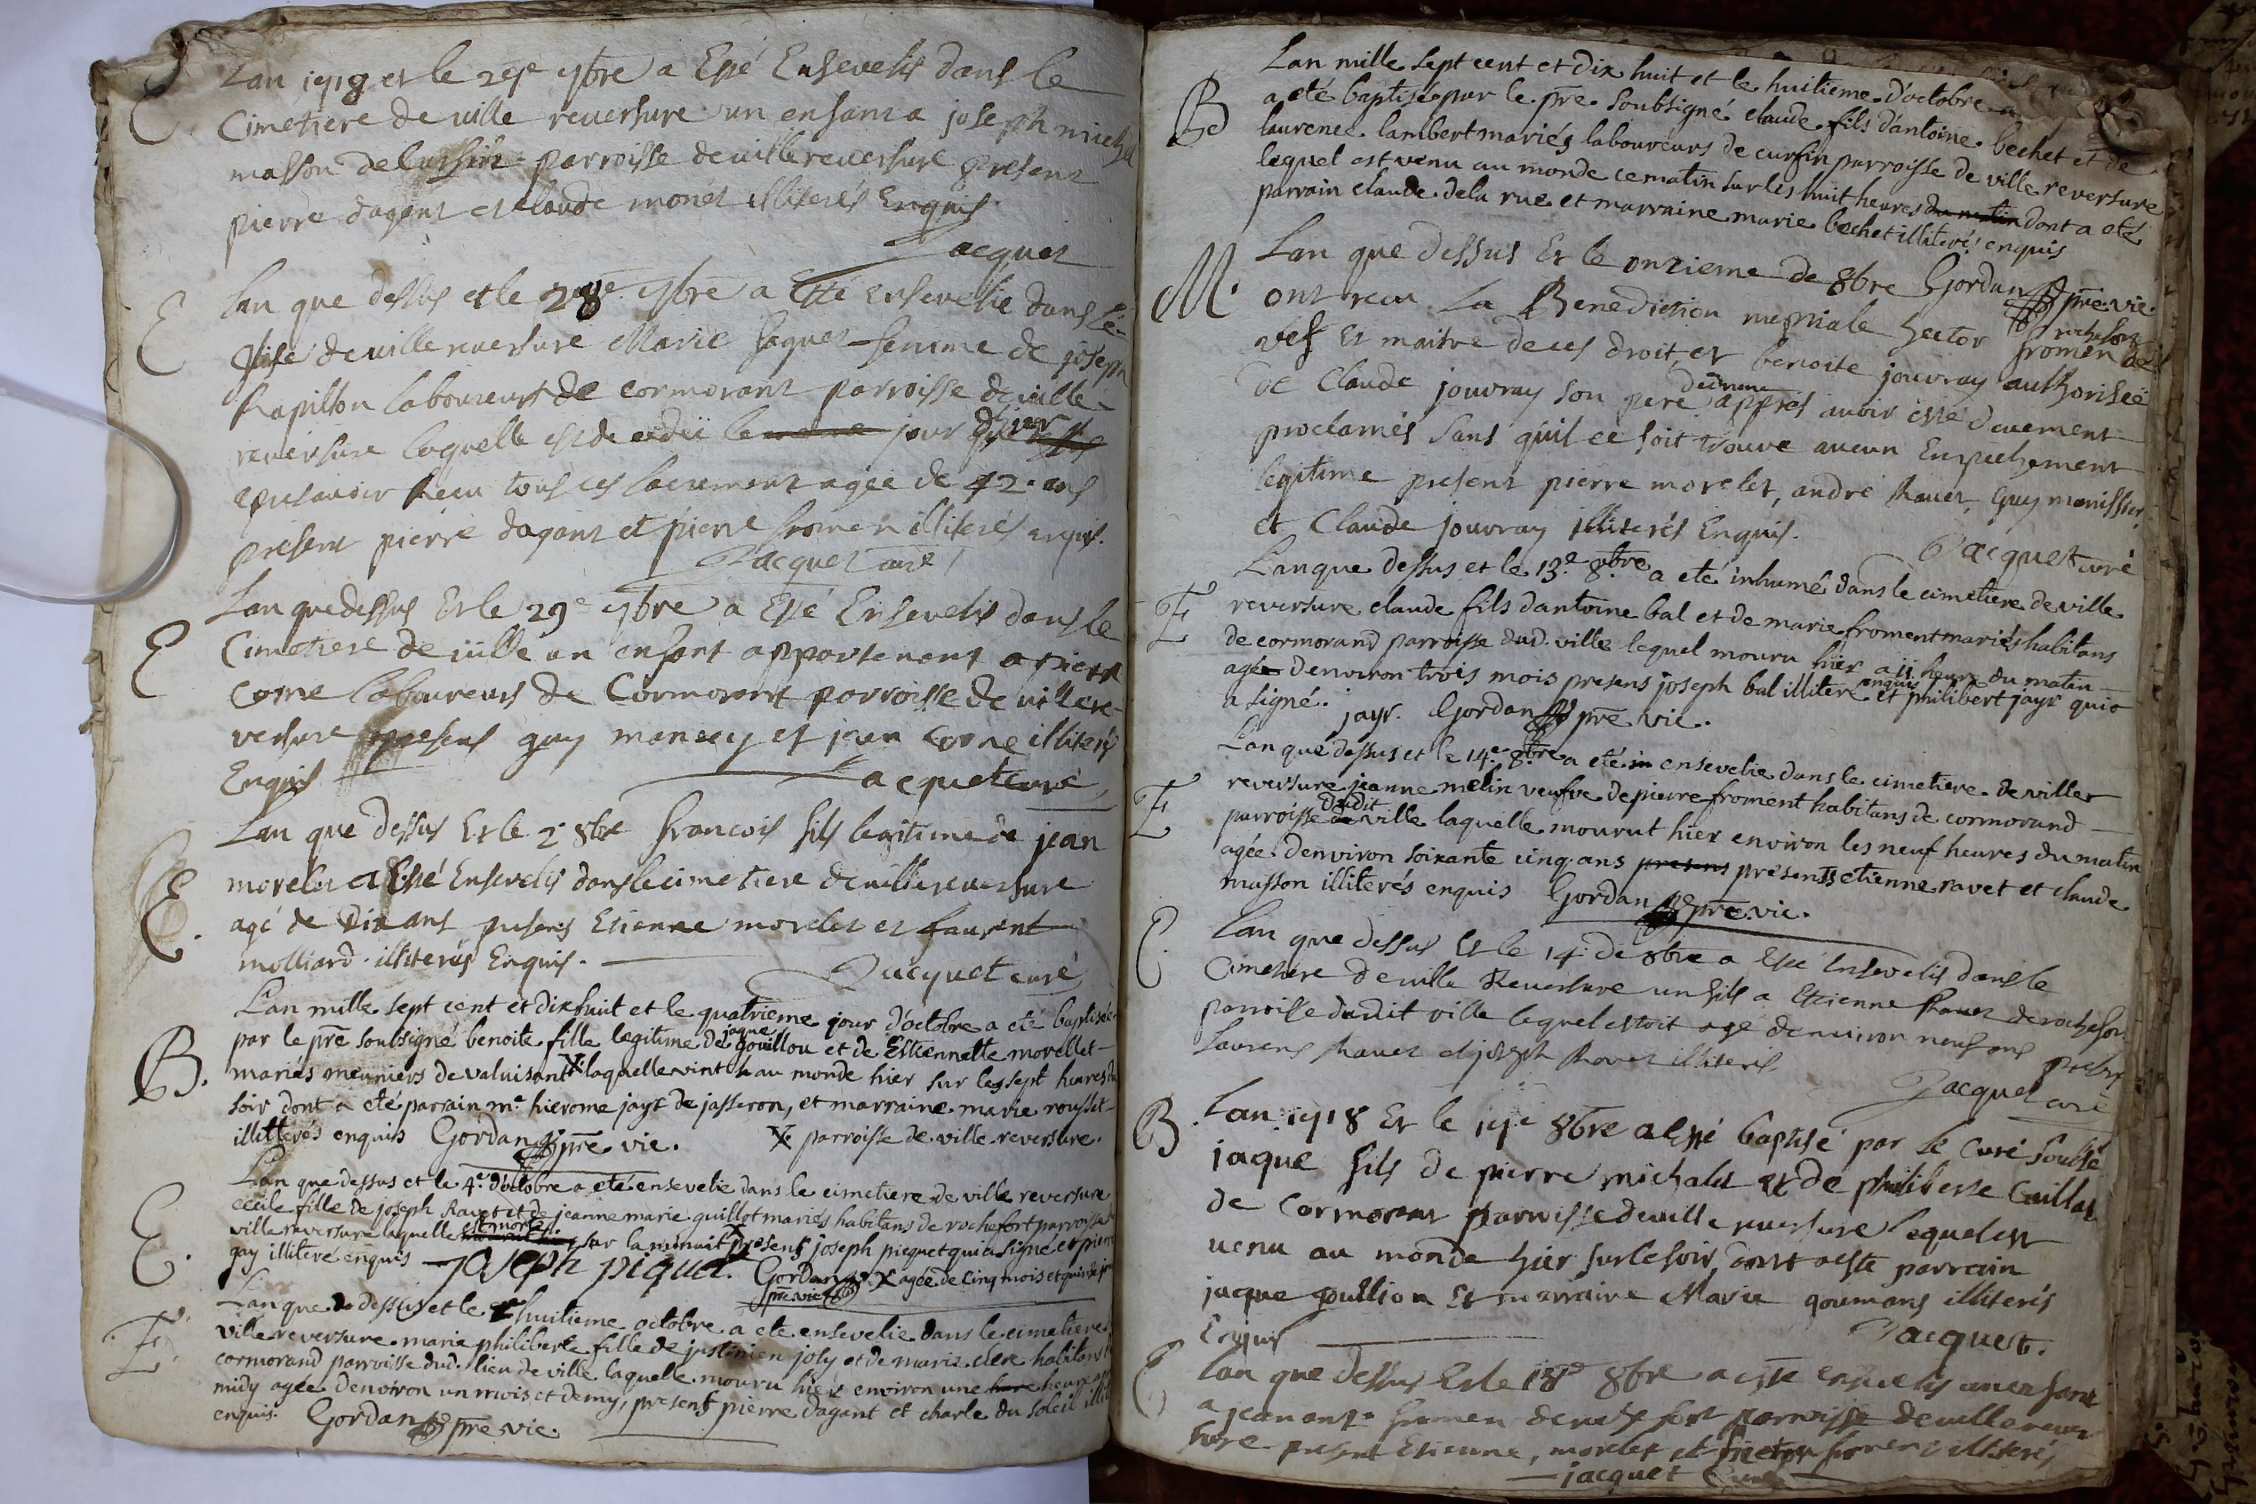 Lan 1718 et le 27e 7bre a Esté Ensevelis dans le
E. Cimetiere de ville reversure un enfant a joseph michel
masson de parroisse de ville reversure present
pierre dagant et claude monet illiterés Enquis
Jacquet
Lan que dessus et le 28e 7bre a Esté ensevelie dans lé
E glise de ville reversure Marie jaquet femme de joseph
Papillon laboureurs de cormorant parroisse de ville
reversure laquelle est decedéé le jour d'hier
apres avoir Receu tous ces sacrement agée de 42 ans
présent pierre dagant et pierre fromen illiterés enquis.
Jacquet curé
Lan que dessus Et le 29e 7bre a Esté Ensevelis dans le
E Cimetiere de ville un enfant appartenant a pierre
Come laboureurs de Cormorant parroisse de ville re-
versure presens guy manecy et jean Come illiterés
Enquis Jacquet curé
Lan que dessus Et le 2e 8bre francois fils legitime de jean
E. morelet a Esté Ensevelis dans le cimetiere de ville reversure
agé de Dix ans presens Etienne morelet et laurent
molliard illiterés Enquis.
Jacquet curé
L'an mille sept cent et dix huit et le quatrieme jour d'octobre a eté baptisée
par le pre soubsigné benoite fille legitime de jaque gouillou et de Estiennette morellet
B. mariés meuniers de valuisant X laquelle vint au monde hier sur les sept heures du
soir dont a eté parrain me hierome jayr de jasseron, et marraine marie rousset
illitterés enquis Gordan pre vic. X parroisse de ville reversure.
L'an que dessus et le 4e d'octobre a eté ensevelie dans le cimetiere de ville reversure
cecile fille de joseph Ravet et de jeanne marie guillot mariés habitans de rochefort parroisse
E. ville reversure laquelle est morte sur la minuit X presens joseph piquet qui a signé et pierre
gay illitere enquis joseph piquet. Gordan pre vic X agée de cinq mois et
Lan que dessus et le huitieme octobre a eté ensevelie dans le cimetiere
E. ville reversure marie philiberte fille de justinien joly et de marie clere habitans
cormorand parroisse dud. lieu de ville laquelle mouru hier environ une heure
midy agée denviron un mois et demy, presens pierre dagant et charle du soleil
enquis. Gordan pre vic.
Lan mille sept cent et dix huit et le huitieme d'octobre
B a eté baptisé par le pre soubsigné claude fils d'antoine bechet et de
laurence lambert mariés laboureurs de curfin parroisse de ville reversure
lequel est venu au monde ce matin sur les huit heures du matin dont a eté
parrain claude dela rue et marraine marie bechet illiterés enquis
Gordan pre vic.
Lan que dessus Et le onzieme de 8bre
M. ont receu La Benediction nuptiale hector fromen de rochefort
vef Et maitre de ces droit, et benoite jouvray authorisée
de Claude jouvray son pere appres avoir esté deuement
proclamés sans quil ce soit trouve aucun Empechement
legitime present pierre morelet, andré Ravet, Guy monissier,
et Claude jouvray illiterés Enquis.
Jacquet curé
Lan que dessus et le 13e 8bre a eté inhumé dans le cimetiere de ville
E reversure claude fils dantoine bal et de marie froment mariés habitans
de cormorand parroisse dud. ville lequel mouru hier a 11 heure du matin
agée denviron trois mois presens joseph bal illitere enquis et philibert jayr qui a
a signé. jayr. Gordan pre vic.
L'an que dessus et le 14e 8bre a eté ensevelie dans le cimetiere de ville
E reversure jeanne melin veufve de pierre froment habitans de cormorand
parroisse dudit ville laquelle mourut hier environ les neuf heures du matin
agée denviron soixante cinq ans presens presens etienne ravet et claude
musson illiterés enquis Gordan pre vic.
E. Lan que dessus Et le 14 de 8bre a Esté Ensevelis dans le
Cimetiere de ville Reversure un fils a Etienne Ravet de rochefort
parroisse dudit ville lequel estoit agé denviron neuf ans presens
Laurens Ravet et joseph Ravet illiterés
Jacquet curé
B. Lan 1718 Et le 17e 8bre a Esté baptisé par le curé soubsé
jaque fils de pierre michalet et de philiberte Caillat
de Cormorant parroisse de ville reversure lequel est
venu au monde hier sur le soir, dont a esté parrain
jaque goullion Et marraine Marie goumans illiterés
Enquis Jacquet.
E Lan que dessus Et le 18e 8bre a esté ensevelis un enfant
a jean fromen de rochefort parroisse de ville rever
sure present Etienne morelet et hector fromen illiterés
jacquet Curé